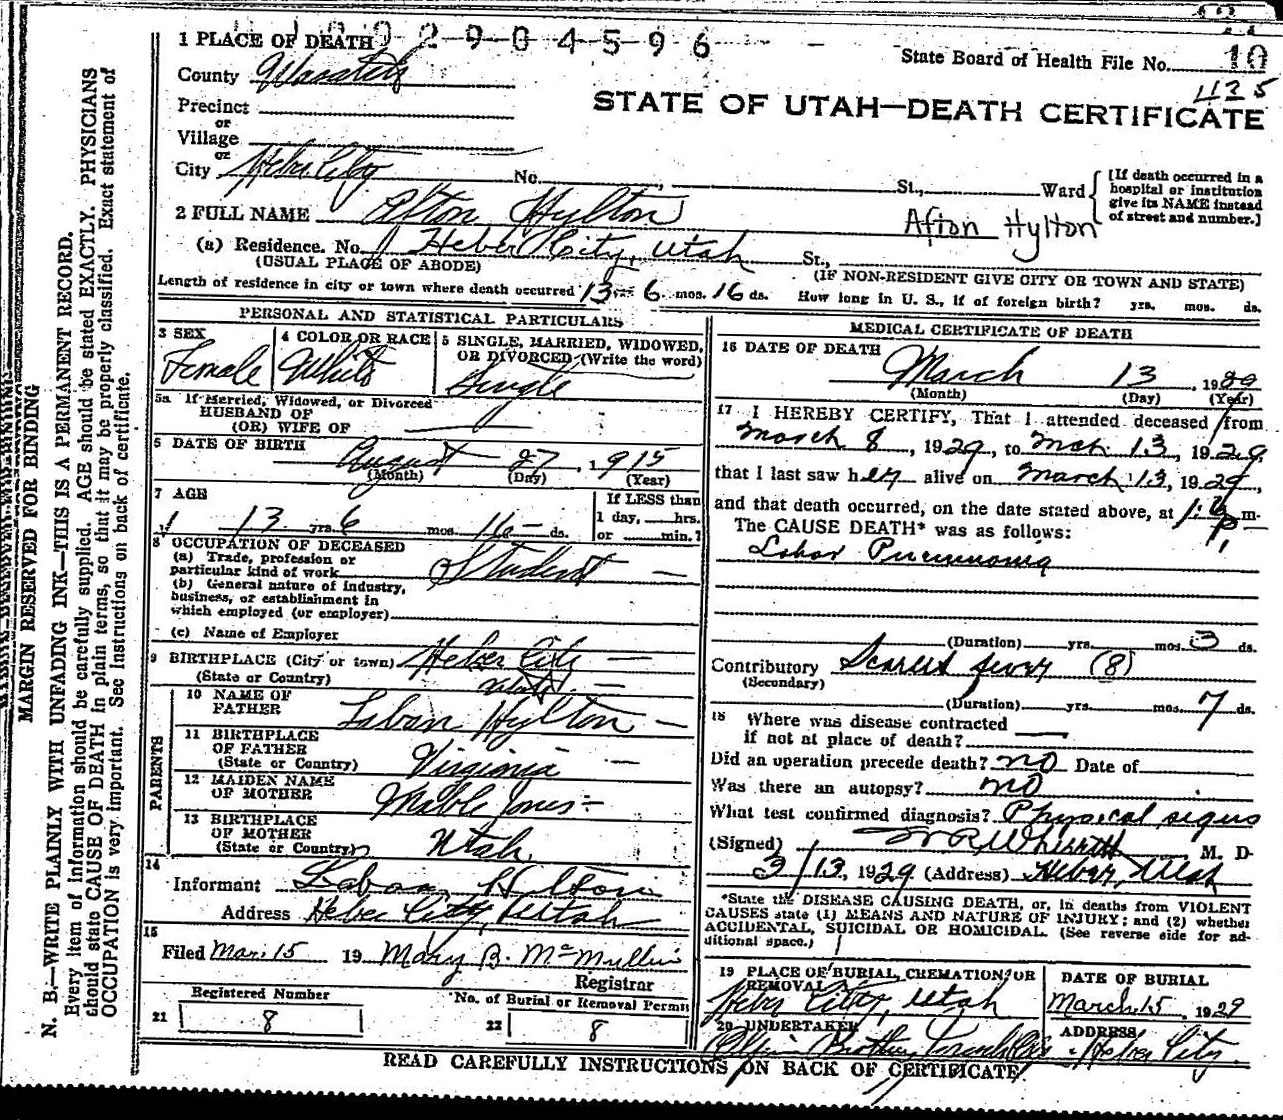 2904596
1 PLACE OF DEATH
State Board of Health File No. 10
435
County Wasatch
STATE OF UTAH—DEATH CERTIFICATE
Precinct
or
Village
or
City Heber City No. St., Ward
[If death occurred in a hospital or institution give its NAME instead of street and number.]
2 FULL NAME Afton Hylton
Afton Hylton
(a) Residence. No. Heber City, Utah St.,
(USUAL PLACE OF ABODE) (IF NON-RESIDENT GIVE CITY OR TOWN AND STATE)
Length of residence in city or town where death occurred 13 yrs. 6 mos. 16 ds. How long in U. S., if of foreign birth? yrs. mos. ds.
PERSONAL AND STATISTICAL PARTICULARS
3 SEX
Female
4 COLOR OR RACE
White
5 SINGLE, MARRIED, WIDOWED, OR DIVORCED (Write the word)
Single
5a If Married, Widowed, or Divorced
HUSBAND OF
(OR) WIFE OF
6 DATE OF BIRTH August 27, 1915
(Month) (Day) (Year)
7 AGE
13 yrs. 6 mos. 16 ds.
If LESS than
1 day, hrs.
or min.?
8 OCCUPATION OF DECEASED
(a) Trade, profession or
particular kind of work Student
(b) General nature of industry,
business, or establishment in
which employed (or employer)
(c) Name of Employer
9 BIRTHPLACE (City or town) Heber City
(State or Country) Utah
PARENTS
10 NAME OF
FATHER Laban Hylton
11 BIRTHPLACE
OF FATHER
(State or Country) Virginia
12 MAIDEN NAME
OF MOTHER Mable Jones
13 BIRTHPLACE
OF MOTHER
(State or Country) Utah
14
Informant Laban Hilton
Address Heber City, Utah
15
Filed Mar. 15 19 Mary B. McMullin
Registrar
Registered Number
21 8
No. of Burial or Removal Permit
22 8
MEDICAL CERTIFICATE OF DEATH
16 DATE OF DEATH
March 13, 1929
(Month) (Day) (Year)
17 I HEREBY CERTIFY, That I attended deceased from
March 8, 1929, to Mch 13, 1929,
that I last saw her alive on March 13, 1929,
and that death occurred, on the date stated above, at m.
The CAUSE DEATH* was as follows:
Lobar Pneumonia
(Duration) yrs. mos. 3 ds.
Contributory Scarlet fever (8)
(Secondary)
(Duration) yrs. mos. 7 ds.
18 Where was disease contracted
if not at place of death?
Did an operation precede death? no Date of
Was there an autopsy? no
What test confirmed diagnosis? Physical signs
(Signed) W R Wherritt M. D.
3/13, 1929 (Address) Heber, Utah
*State the DISEASE CAUSING DEATH, or, in deaths from VIOLENT
CAUSES state (1) MEANS AND NATURE OF INJURY; and (2) whether
ACCIDENTAL, SUICIDAL OR HOMICIDAL. (See reverse side for ad-
ditional space.)
19 PLACE OF BURIAL, CREMATION, OR
REMOVAL
Heber City, Utah
DATE OF BURIAL
March 15, 1929
20 UNDERTAKER
Olpin Brothers
ADDRESS
Heber City.
READ CAREFULLY INSTRUCTIONS ON BACK OF CERTIFICATE
MARGIN RESERVED FOR BINDING
N. B.—WRITE PLAINLY WITH UNFADING INK—THIS IS A PERMANENT RECORD.
Every item of information should be carefully supplied. AGE should be stated EXACTLY. PHYSICIANS
should state CAUSE OF DEATH in plain terms, so that it may be properly classified. Exact statement of
OCCUPATION is very important. See instructions on back of certificate.